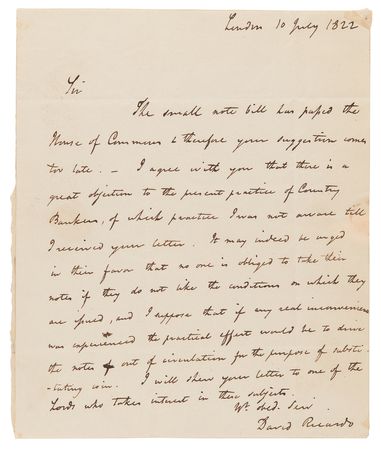 London 10 July 1822
Sir
The small note bill has passed the
House of Commons & therefore your suggestion comes
too late. — I agree with you that there is a
great objection to the present practice of Country
Bankers, of which practice I was not aware till
I received your letter. It may indeed be urged
in their favor that no one is obliged to take their
notes if they do not like the conditions on which they
are issued, and I suppose that if any real inconvenience
was experienced the practical effect would be to drive
the notes out of circulation for the purpose of substi
-tuting coin. I will shew your letter to one of the
Lords who takes interest in these subjects.
Yr. obed. Serv
David Ricardo